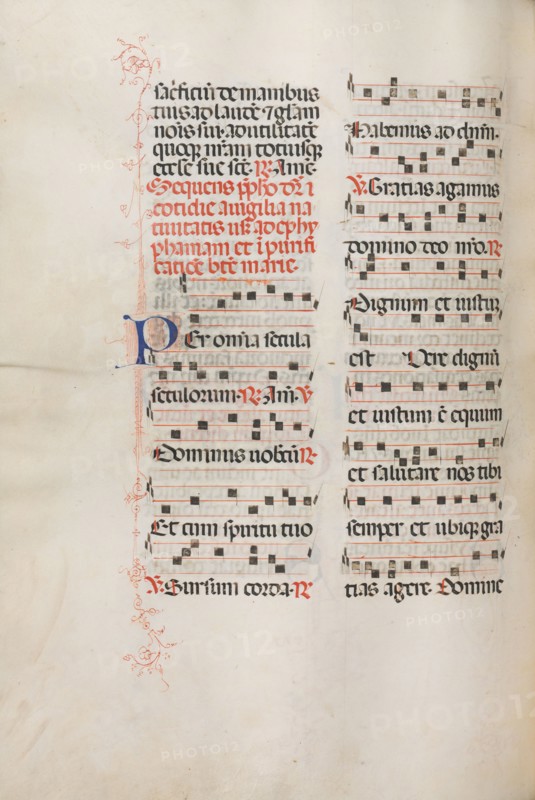 sacrificiū de manibus
tuis ad laudē ⁊ glam
nois sui. ad utilitatē
quoqꝫ nr̄am totiusqꝫ
eccle sue scē. ℟. Amē.
Sequens p̄pho dr̄ i
cotidie a uigilia na
tiuitatis usqꝫ ad ephy
phaniam et ī purifi
catiōe btē marie.
Per omīa secula
seculorum. ℟. Am̄. ℣
Dominus uobcū ℟.
Et cum spiritu tuo
℣. Sursum corda. ℟
Habemus ad dn̄m.
℣. Gratias agamus
domino deo nr̄o. ℟
Dignum et iustu͞
est Vere dignū
et iustum ē equum
et salutare nos tibi
semper et ubiqꝫ gra
tias agere. Domine
PHOTO12